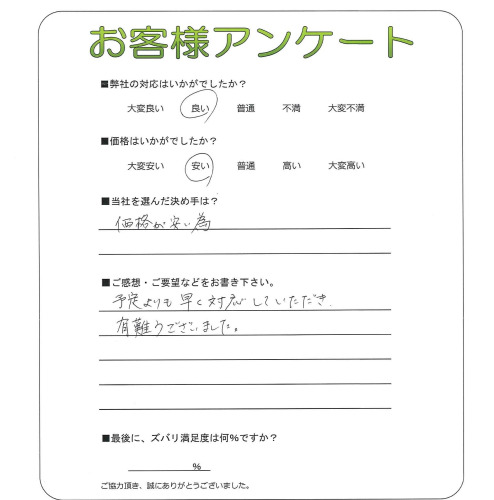 お客様アンケート
■弊社の対応はいかがでしたか？
大変良い 良い 普通 不満 大変不満
■価格はいかがでしたか？
大変安い 安い 普通 高い 大変高い
■当社を選んだ決め手は？
価格が安い為
■ご感想・ご要望などをお書き下さい。
予定よりも早く対応していただき
有難うございました。
■最後に、ズバリ満足度は何%ですか？
%
ご協力頂き、誠にありがとうございました。